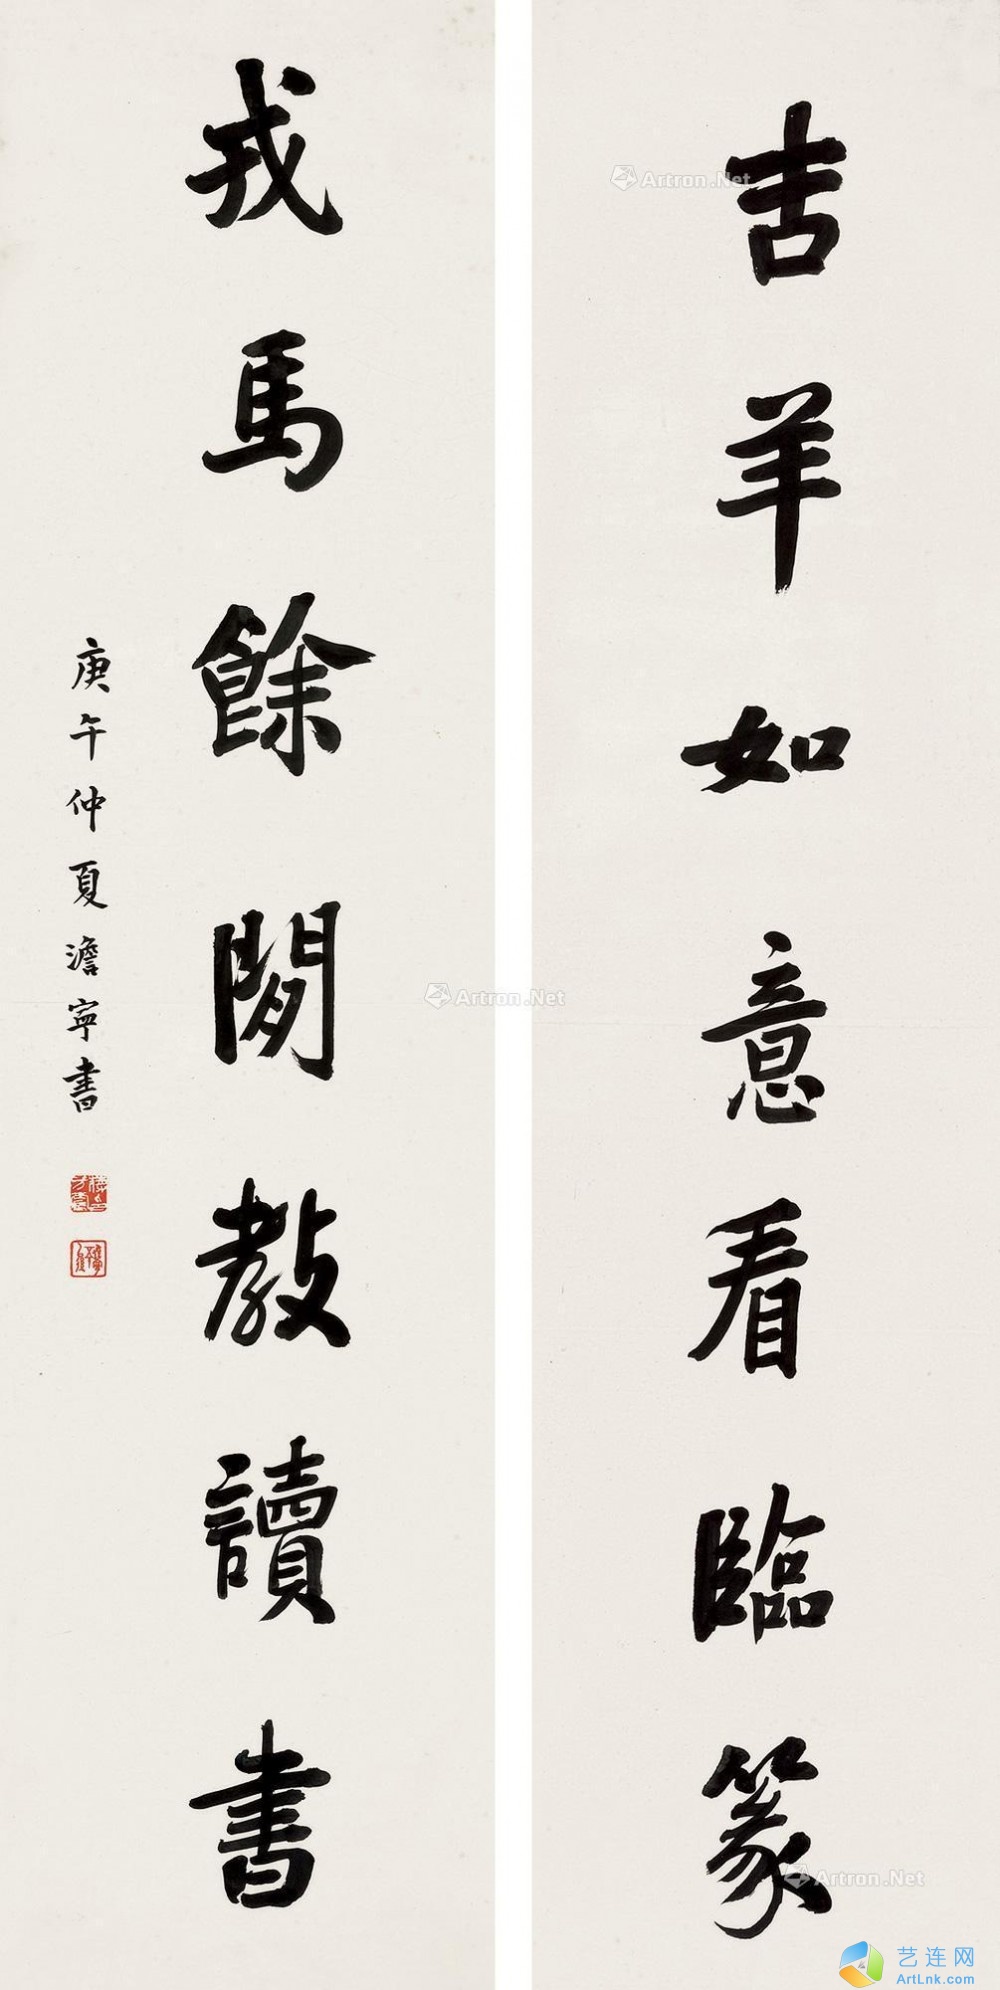 吉羊如意看臨篆
戎馬餘閒教讀書
庚午仲夏澹寧書
Artron.Net
Artron.Net
Artron.Net
艺连网
ArtLnk.com